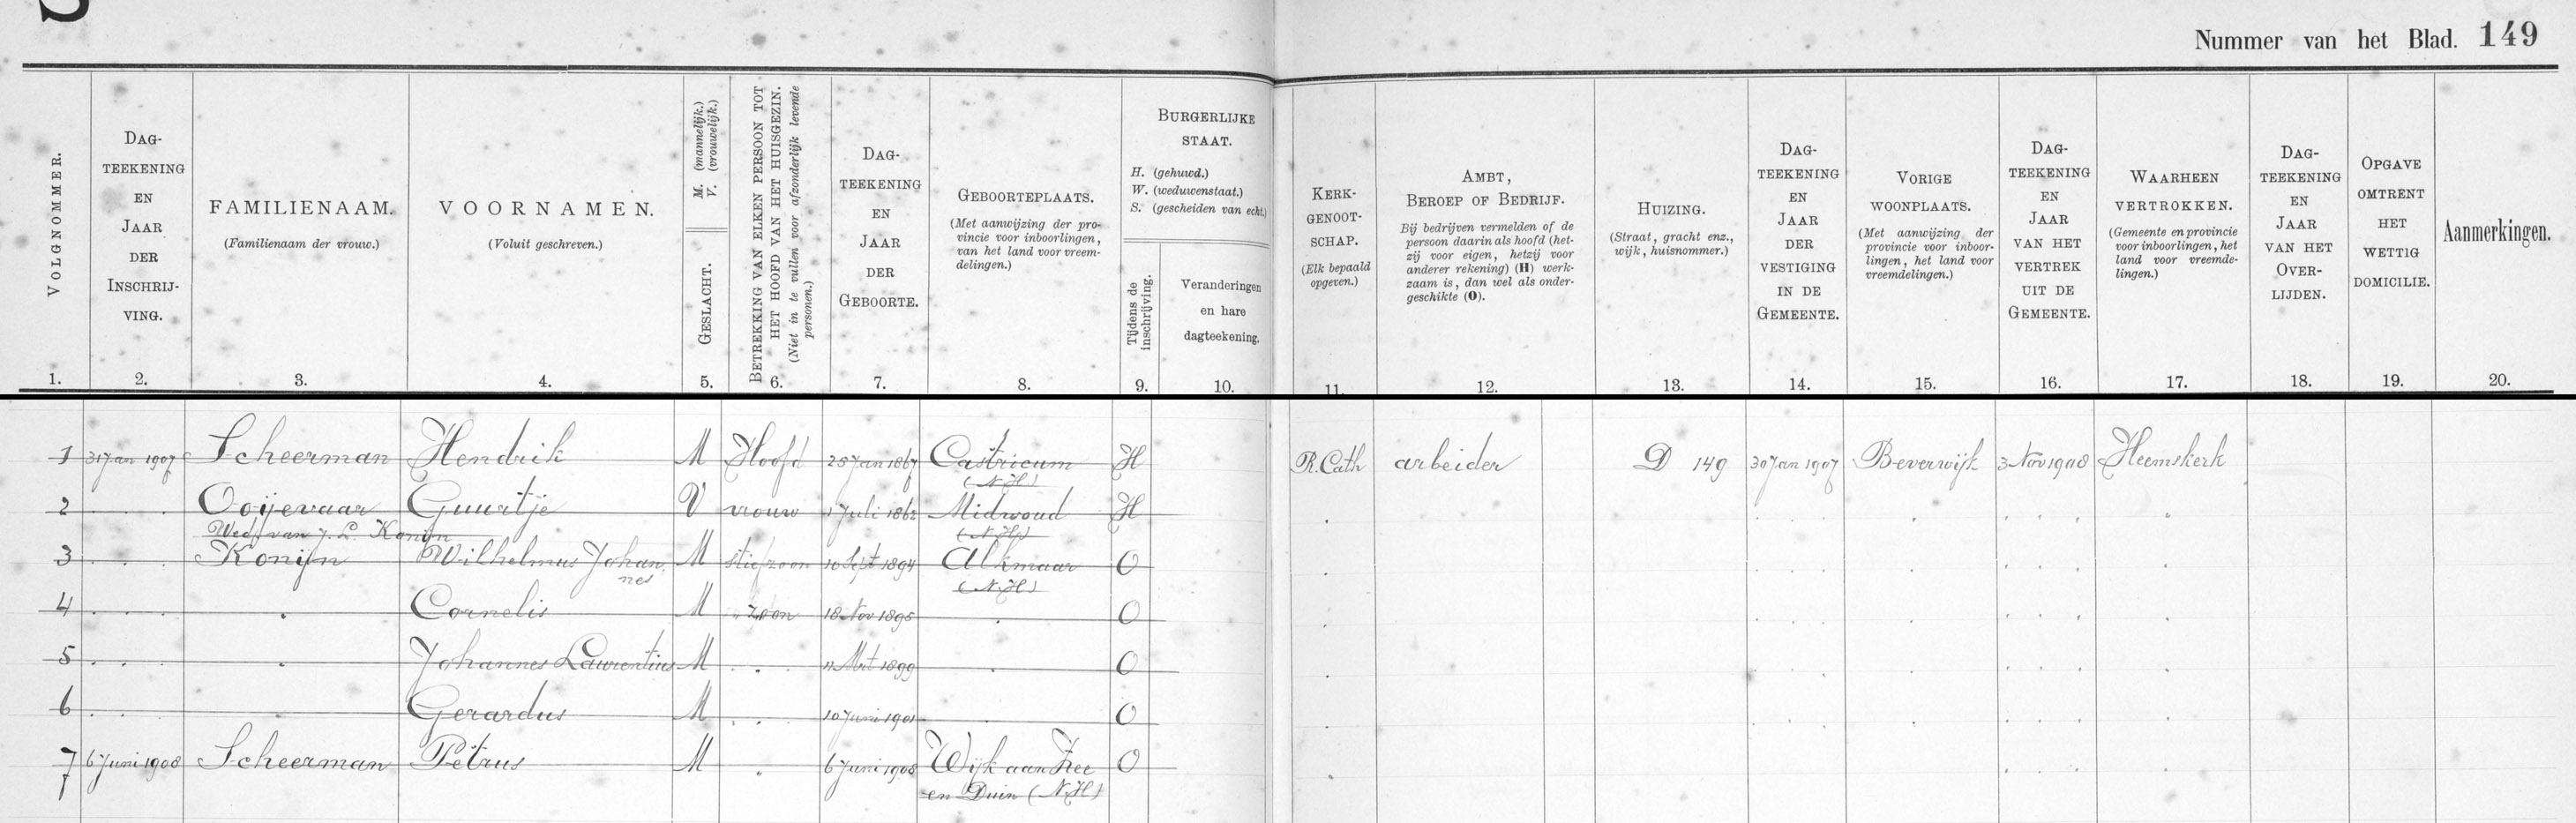 S
Nummer van het Blad. 149
VOLGNOMMER.
1.
DAG-
TEEKENING
EN
JAAR
DER
INSCHRIJ-
VING.
2.
FAMILIENAAM.
(Familienaam der vrouw.)
3.
VOORNAMEN.
(Voluit geschreven.)
4.
M. (mannelijk.)
V. (vrouwelijk.)
GESLACHT.
5.
BETREKKING VAN ELKEN PERSOON TOT
HET HOOFD VAN HET HUISGEZIN.
(Niet in te vullen voor afzonderlijk levende
personen.)
6.
DAG-
TEEKENING
EN
JAAR
DER
GEBOORTE.
7.
GEBOORTEPLAATS.
(Met aanwijzing der pro-
vincie voor inboorlingen,
van het land voor vreem-
delingen.)
8.
BURGERLIJKE
STAAT.
H. (gehuwd.)
W. (weduwenstaat.)
S. (gescheiden van echt.)
Tijdens de
inschrijving.
9.
Veranderingen
en hare
dagteekening.
10.
KERK-
GENOOT-
SCHAP.
(Elk bepaald
opgeven.)
11.
AMBT,
BEROEP OF BEDRIJF.
Bij bedrijven vermelden of de
persoon daarin als hoofd (het-
zij voor eigen, hetzij voor
anderer rekening) (H) werk-
zaam is, dan wel als onder-
geschikte (O).
12.
HUIZING.
(Straat, gracht enz.,
wijk, huisnommer.)
13.
DAG-
TEEKENING
EN
JAAR
DER
VESTIGING
IN DE
GEMEENTE.
14.
VORIGE
WOONPLAATS.
(Met aanwijzing der
provincie voor inboor-
lingen, het land voor
vreemdelingen.)
15.
DAG-
TEEKENING
EN
JAAR
VAN HET
VERTREK
UIT DE
GEMEENTE.
16.
WAARHEEN
VERTROKKEN.
(Gemeente en provincie
voor inboorlingen, het
land voor vreemde-
lingen.)
17.
DAG-
TEEKENING
EN
JAAR
VAN HET
OVER-
LIJDEN.
18.
OPGAVE
OMTRENT
HET
WETTIG
DOMICILIE.
19.
Aanmerkingen.
20.
1 31 Jan 1907 Scheerman Hendrik M Hoofd 25 Jan 1867 Castricum H R. Cath arbeider D 149 30 Jan 1907 Beverwijk 3 Nov 1908 Heemskerk
(N.H)
2 . . . Ooijevaar Guurtje V vrouw 1 Juli 1862 Midwoud H
Wed. van J. L. Konijn (N.H)
3 . . . Konijn Wilhelmus Johan- M stiefzoon 10 Sept 1894 Alkmaar O
nes (N.H)
4 . . . Cornelis M " zoon 18 Nov 1895 . O
5 . . . Johannes Laurentius M . . 11 Mrt 1899 . O
6 . . . Gerardus M . . 10 Juni 1901 . O
7 6 Juni 1908 Scheerman Petrus M . 6 Juni 1908 Wijk aan Zee O
en Duin (N.H)